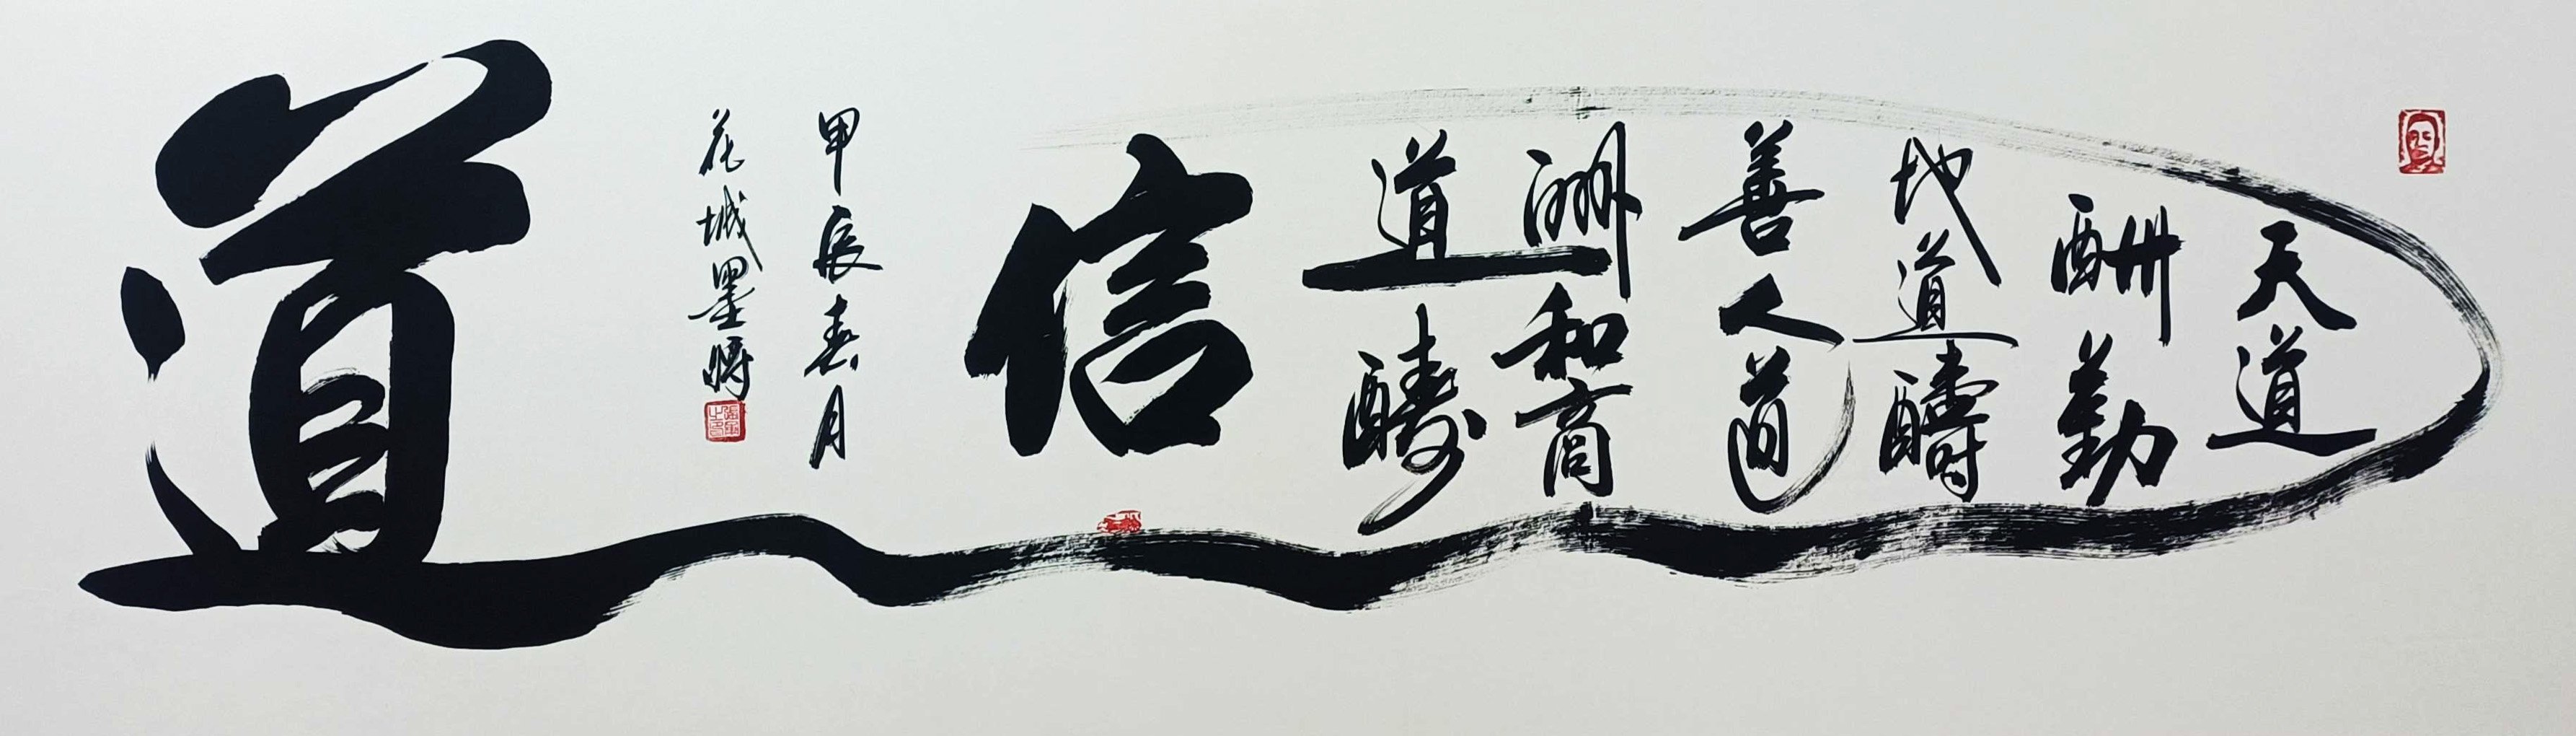 天道
酬勤
地道醻
善人道
酬和商
道醻
信
甲辰春月
花城墨
道